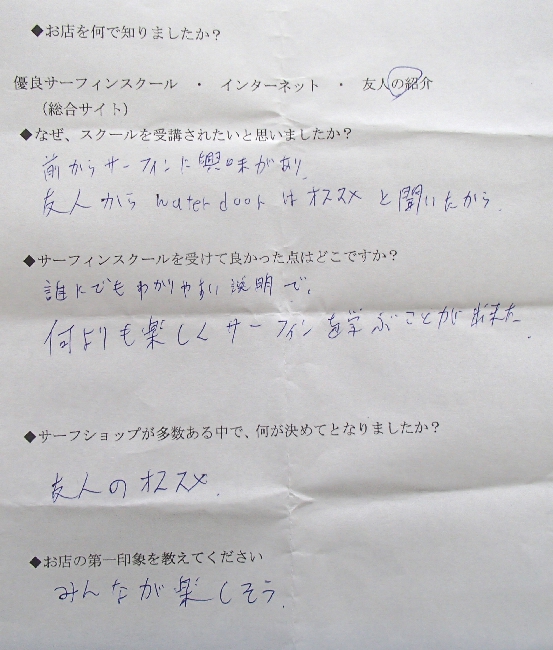 ◆お店を何で知りましたか？
優良サーフィンスクール ・ インターネット ・ 友人の紹介
（総合サイト）
◆なぜ、スクールを受講されたいと思いましたか？
前からサーフィンに興味があり
友人から water door はオススメと聞いたから.
◆サーフィンスクールを受けて良かった点はどこですか？
誰にでもわかりやすい説明で、
何よりも楽しくサーフィンを学ぶことが出来た.
◆サーフショップが多数ある中で、何が決めてとなりましたか？
友人のオススメ.
◆お店の第一印象を教えてください
みんなが楽しそう.